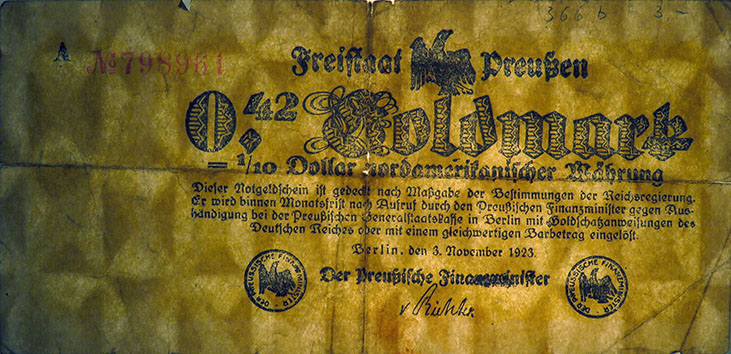 366 b 3.-
A № 798961
Freistaat Preußen
0,42 Goldmark
= 1/10 Dollar nordamerikanischer Währung
Dieser Notgeldschein ist gedeckt nach Maßgabe der Bestimmungen der Reichsregierung.
Er wird binnen Monatsfrist nach Aufruf durch den Preußischen Finanzminister gegen Aus-
händigung bei der Preußischen Generalstaatskasse in Berlin mit Goldschatzanweisungen des
Deutschen Reiches oder mit einem gleichwertigen Barbetrag eingelöst.
Berlin, den 3. November 1923.
Der Preußische Finanzminister
v. Richter.
DER PREUSSISCHE FINANZMINISTER
DER PREUSSISCHE FINANZMINISTER